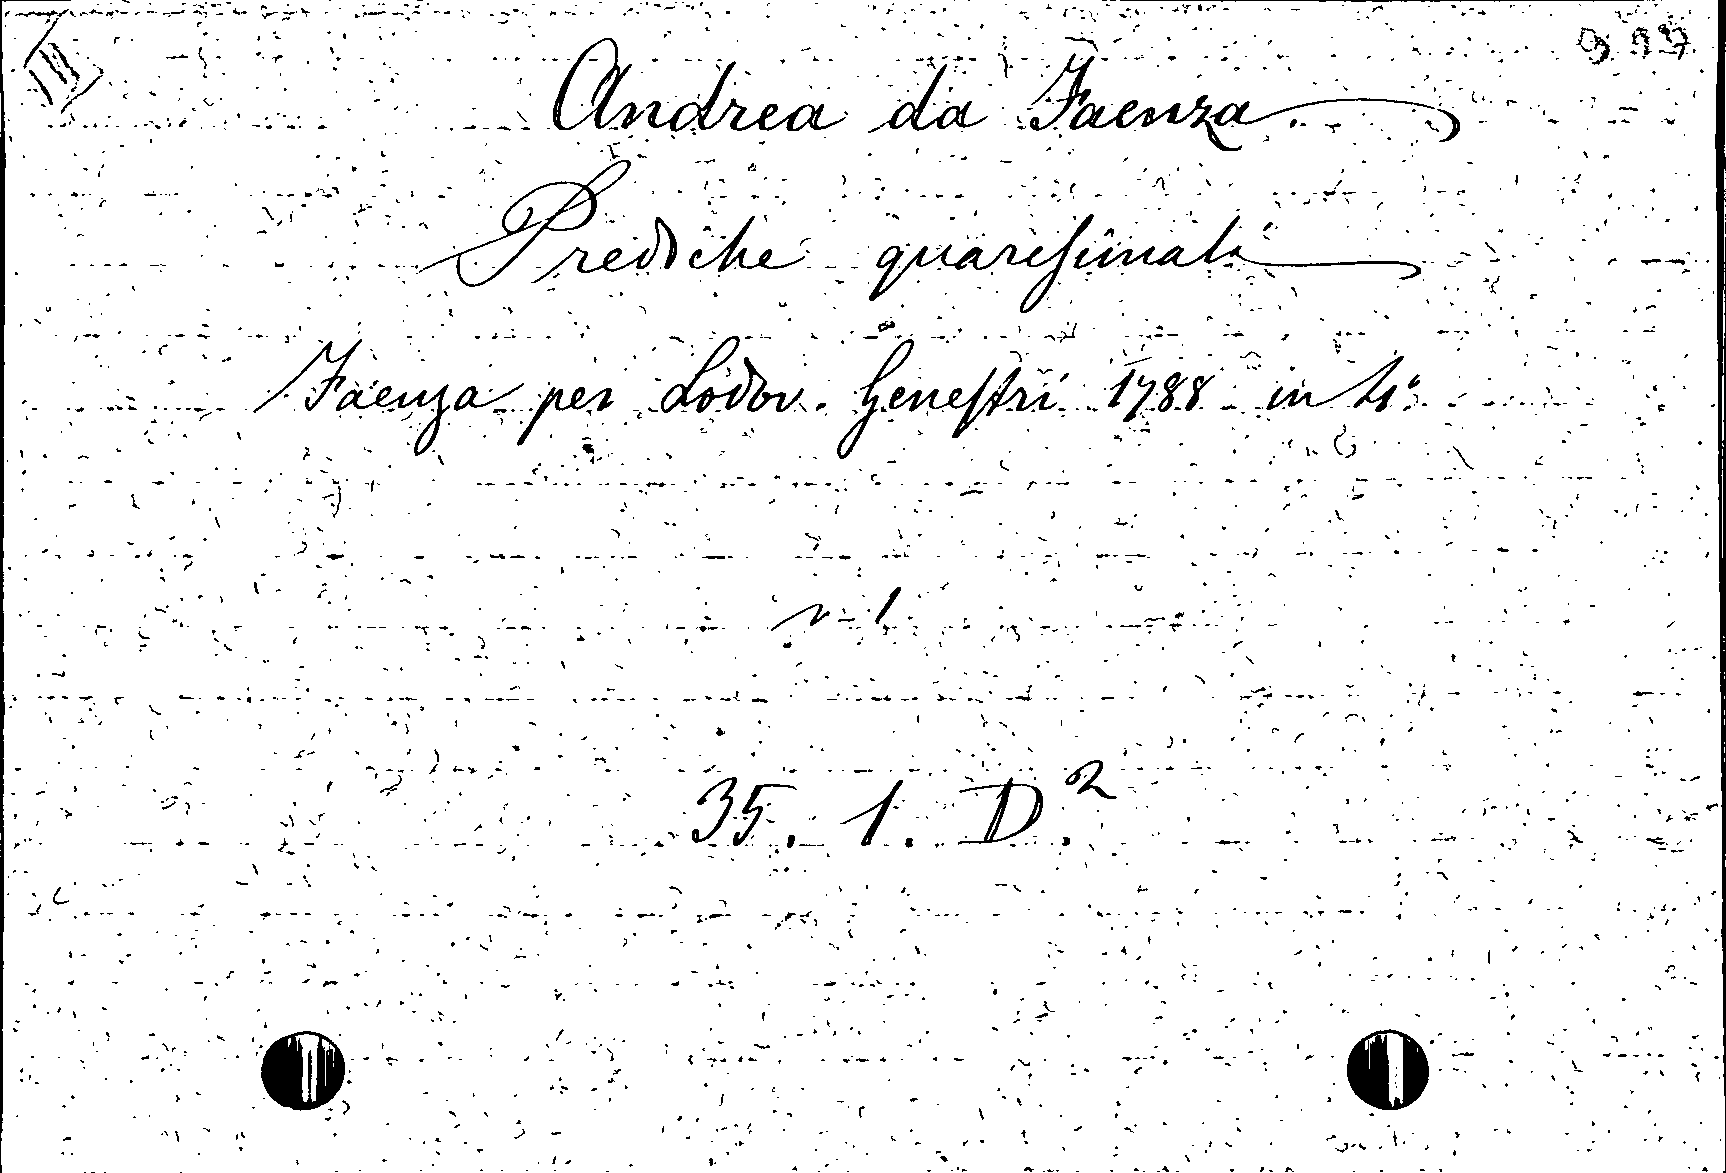 Andrea da Faenza
Prediche quaresimali
Faenza per Lodov. Genestri 1788 in 4°
v. 1
35. 1. D.2